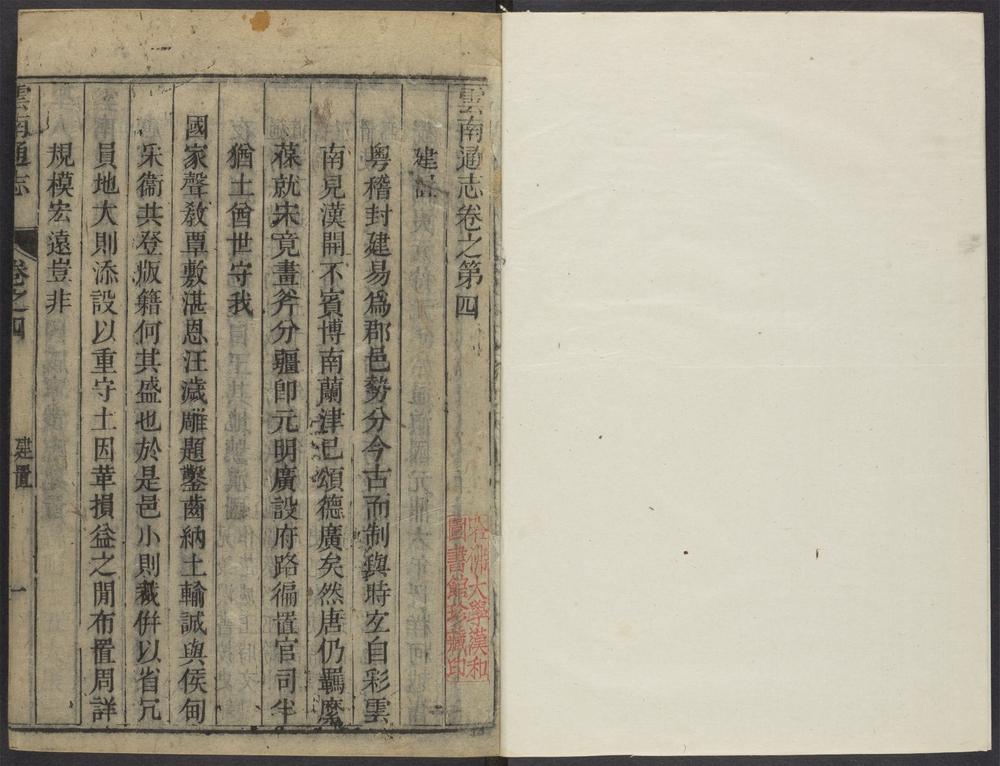 雲南通志卷之第四
建置
粵稽封建易為郡邑勢分今古而制與時互自彩雲
南見漢開不賓博南蘭津已頌德廣矣然唐仍羈縻
葆就宋竟畫斧分疆卽元明廣設府路徧置官司半
猶土酋世守我
國家聲教覃敷湛恩汪濊雕題鑿齒納土輸誠與侯甸
采衞共登版籍何其盛也於是邑小則裁併以省冗
員地大則添設以重守土因革損益之閒布置周詳
規模宏遠豈非
雲南通志
卷之四
建置
一
大學漢和
圖書館珍藏印